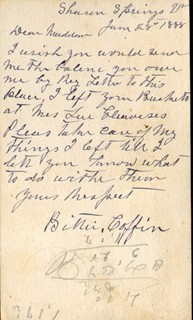 Sharon Springs
June 28th 1885
Dear Maddam
I wish you would send
Me the balenc you owe
me by Reg Letter to this
place, I left your Buckets
at Mrs Lue Cleaveses
Pleas take care of My
Things I left till I
let you know what
to do withe them
yours Respect
Bittie, Coffin